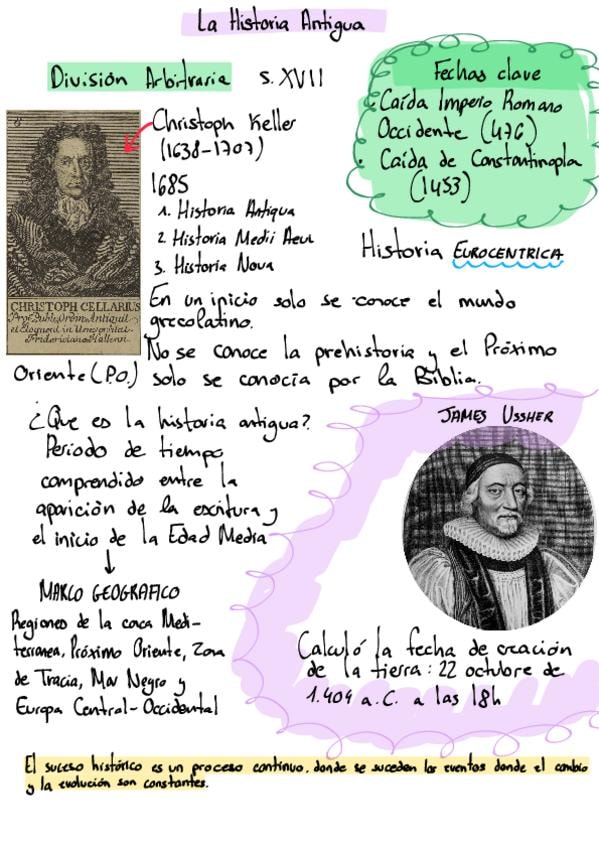 La Historia Antigua
División Arbitraria s. XVII
Fechas clave
• Caída Imperio Romano
Occidente (476)
• Caída de Constantinopla
(1453)
Christoph Keller
(1638-1707)
1685
1. Historia Antiqua
2. Historia Medii Aevi
3. Historia Nova
Historia EUROCENTRICA
CHRISTOPH CELLARIUS
Prof. Publ. Ordin. Antiquit.
et Eloquent in Universitat.
Fridericiana Hallens.
En un inicio solo se conoce el mundo
grecolatino.
No se conoce la prehistoria y el Próximo
Oriente (P.O.) solo se conocía por la Biblia.
¿Que es la historia antigua?
Periodo de tiempo
comprendido entre la
aparición de la escritura y
el inicio de la Edad Media
MARCO GEOGRAFICO
Regiones de la coca Medi-
terranea, Próximo Oriente, Zona
de Tracia, Mar Negro y
Europa Central-Occidental
JAMES USSHER
Calculó la fecha de creación
de la tierra: 22 octubre de
1.404 a.C. a las 18h
El suceso histórico es un proceso continuo, donde se suceden los eventos donde el cambio
y la evolución son constantes.